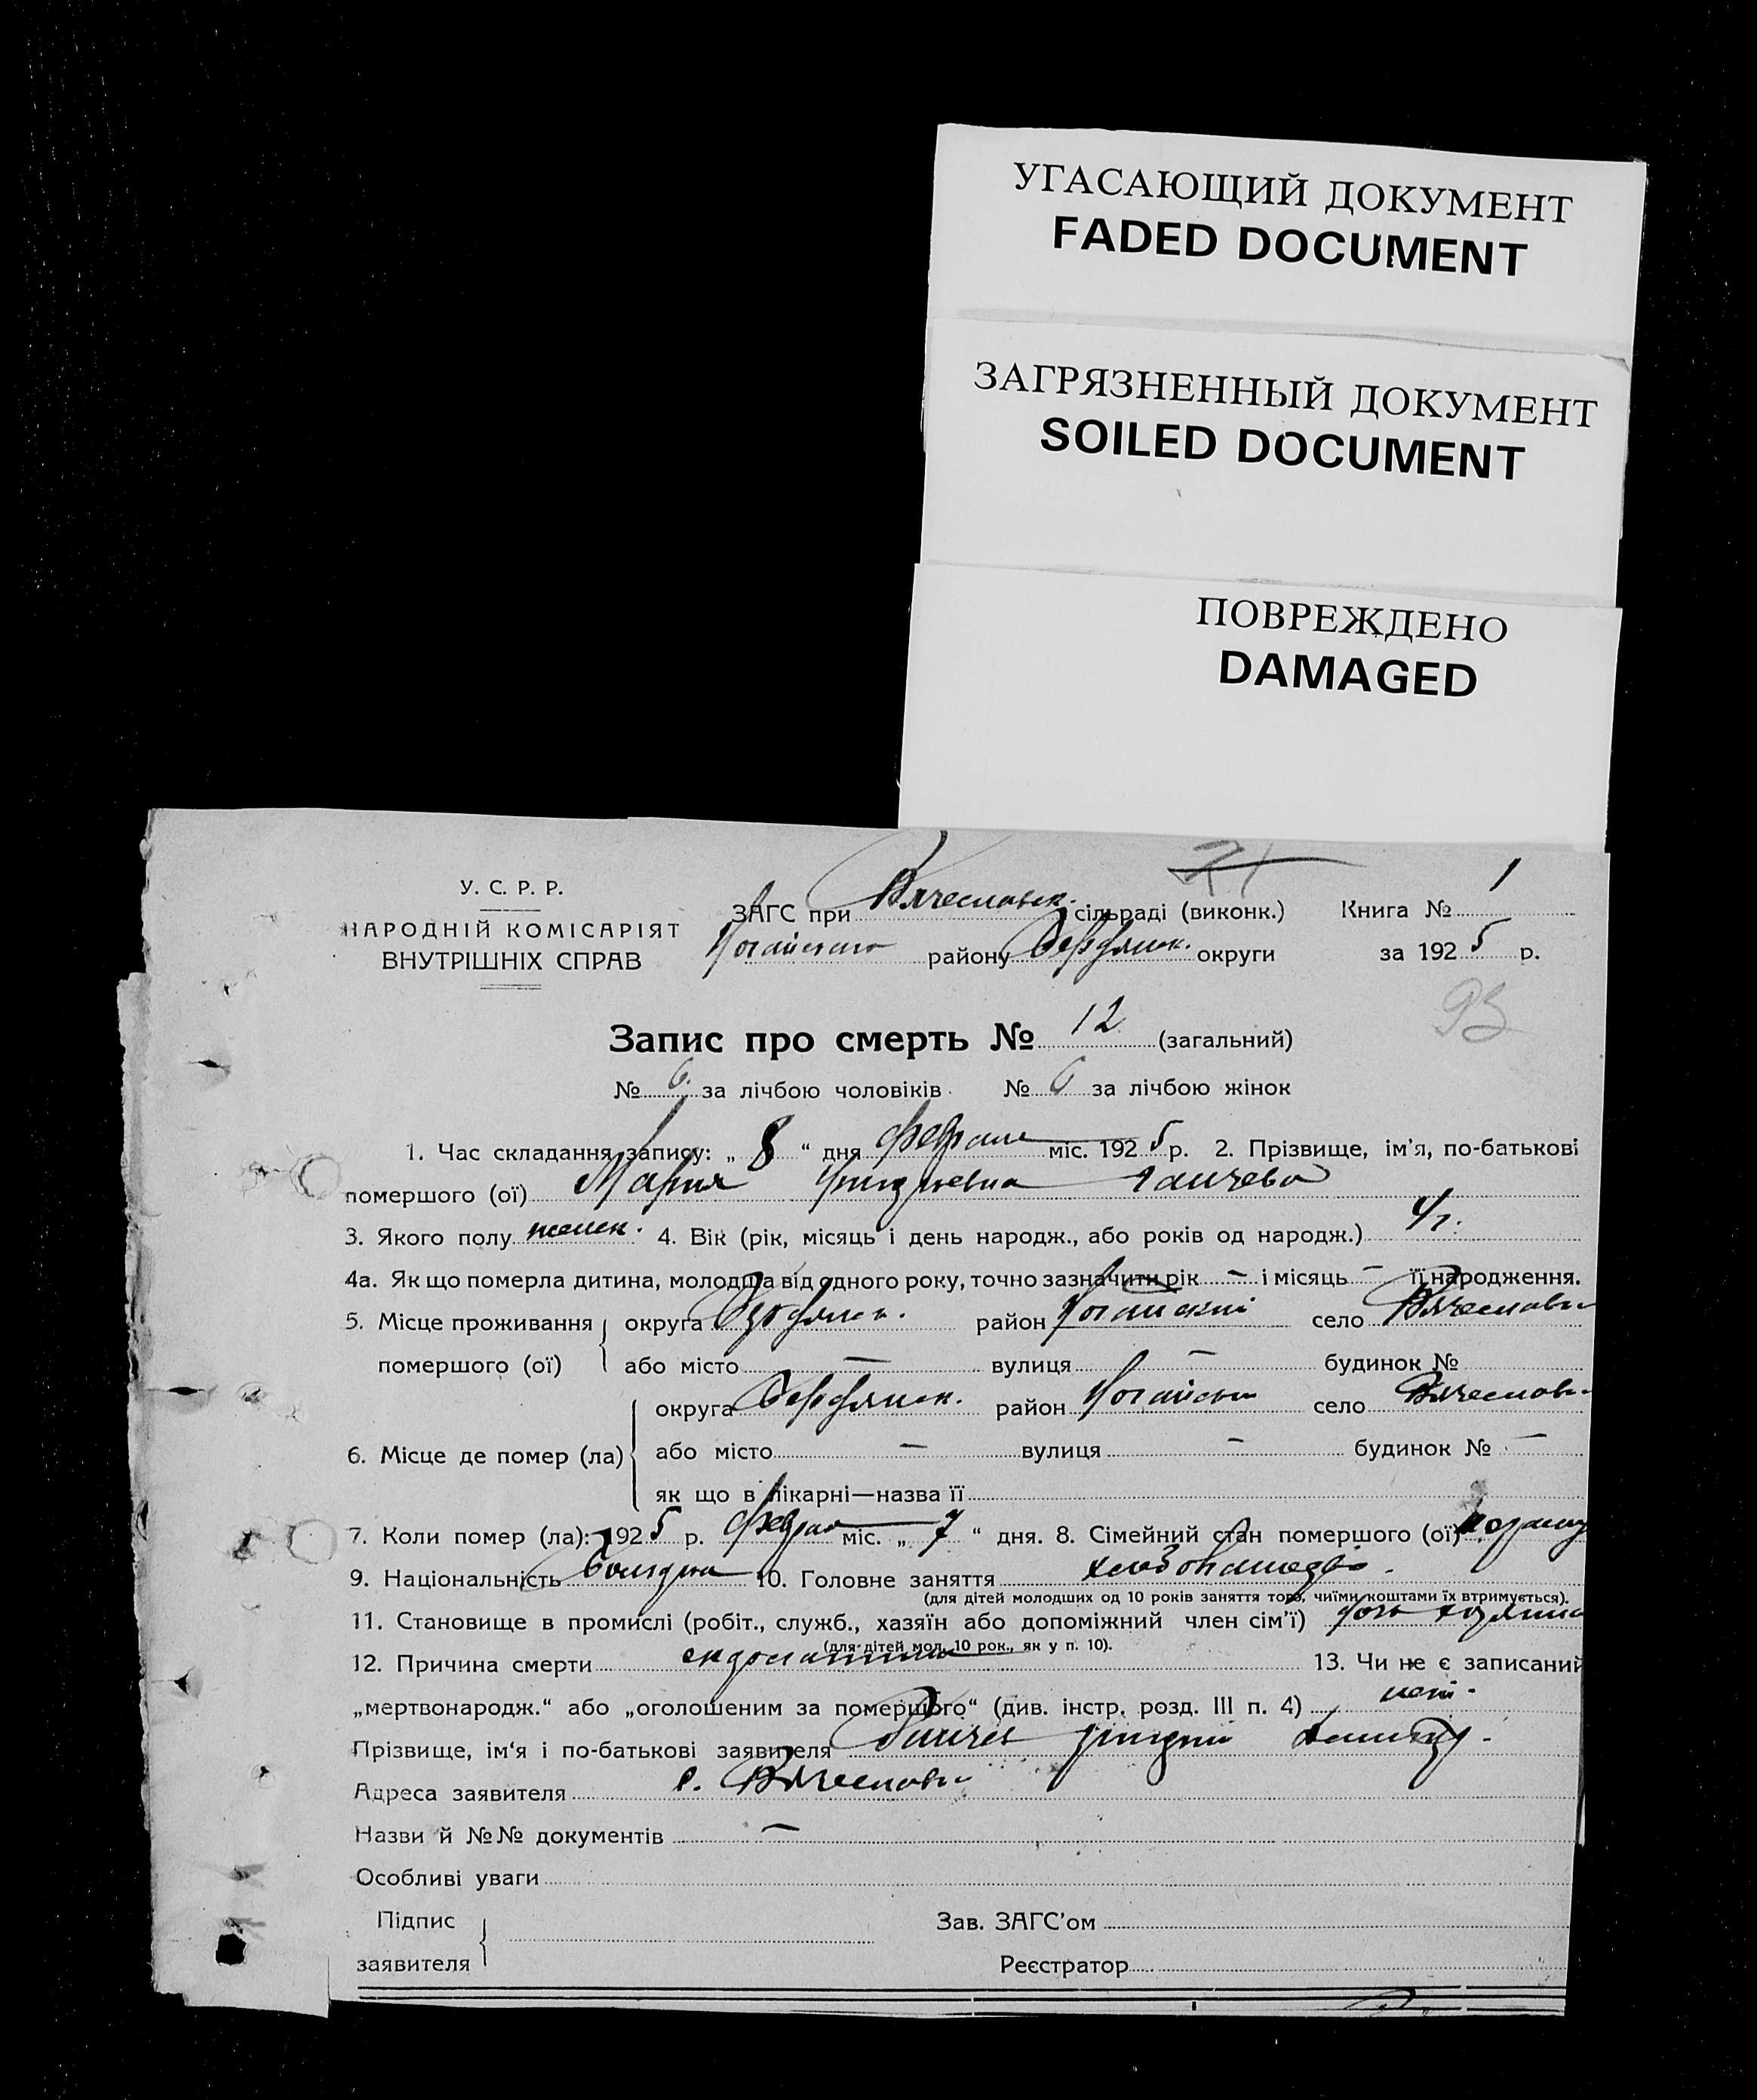 УГАСАЮЩИЙ ДОКУМЕНТ
FADED DOCUMENT
ЗАГРЯЗНЕННЫЙ ДОКУМЕНТ
SOILED DOCUMENT
ПОВРЕЖДЕНО
DAMAGED
У. С. Р. Р.
НАРОДНІЙ КОМІСАРІЯТ
ВНУТРІШНІХ СПРАВ
ЗАГС при Вячеславск. сільраді (виконк.) Книга № 1
Ногайского району Бердянск. округи за 1925 р.
93
Запис про смерть № 12 (загальний)
№ 6. за лічбою чоловіків № 6 за лічбою жінок
1. Час складання запису: „ 8 “ дня феврале міс. 1925 р. 2. Прізвище, ім'я, по-батькові
помершого (ої) Мария
3. Якого полу женск. 4. Вік (рік, місяць і день народж., або років од народж.) 4 г.
4а. Як що померла дитина, молодша від одного року, точно зазначити рік — і місяць — її народження.
5. Місце проживання округа Бердянск. район Ногайский село Вячеславк
помершого (ої) або місто — вулиця — будинок №
округа Бердянск. район Ногайск село Вячеславк
6. Місце де помер (ла) або місто — вулиця — будинок № —
як що в лікарні—назва її
7. Коли помер (ла): 1925 р. феврал міс. „ 7 “ дня. 8. Сімейний стан помершого (ої)
9. Національність 10. Головне заняття хлебопашество.
(для дітей молодших од 10 років заняття того, чиїми коштами їх втримується).
11. Становище в промислі (робіт., служб., хазяїн або допоміжний член сім'ї) дочь хозяина
(для дітей мол. 10 рок., як у п. 10).
12. Причина смерти 13. Чи не є записаний
„мертвонародж.“ або „оголошеним за помершого“ (див. інстр. розд. III п. 4) нет.
Прізвище, ім'я і по-батькові заявителя
Адреса заявителя с. Вячеславк
Назви й №№ документів —
Особливі уваги
Підпис Зав. ЗАГС'ом
заявителя Реєстратор